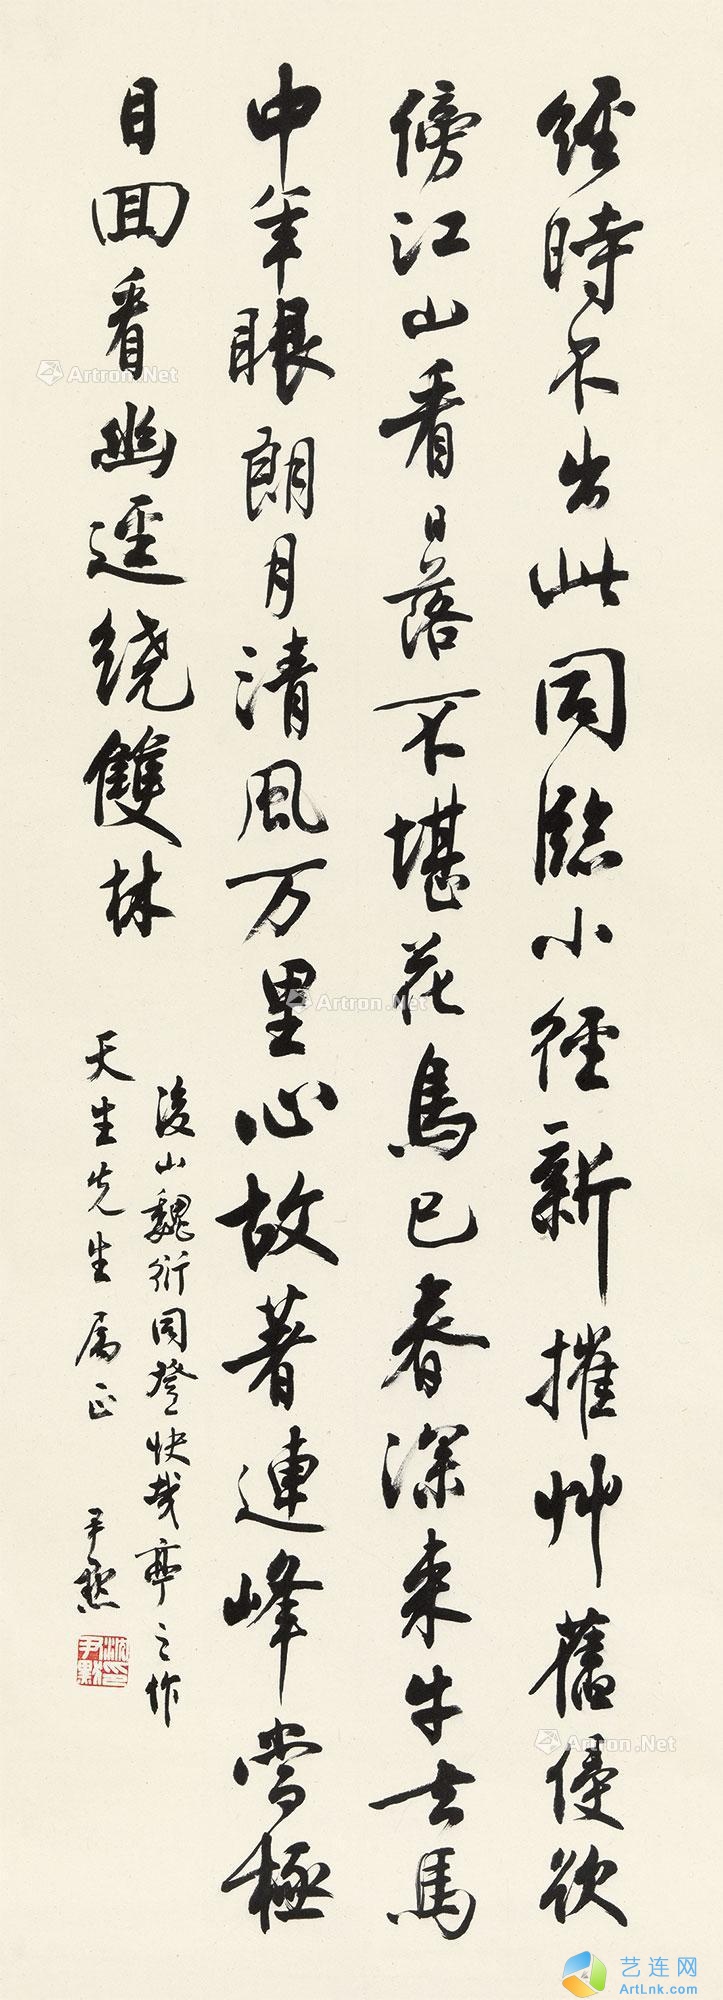 經時不出此同臨小徑新摧艸舊侵欲
傍江山看日落不堪花鳥已春深来牛去馬
中年眼朗月清風万里心故著連峰當極
目回看幽逕繞雙林
後山魏衍同登快哉亭之作
天生先生属正 尹默
沈尹默印
Artron.Net
Artron.Net
Artron.Net
艺连网
ArtLnk.com